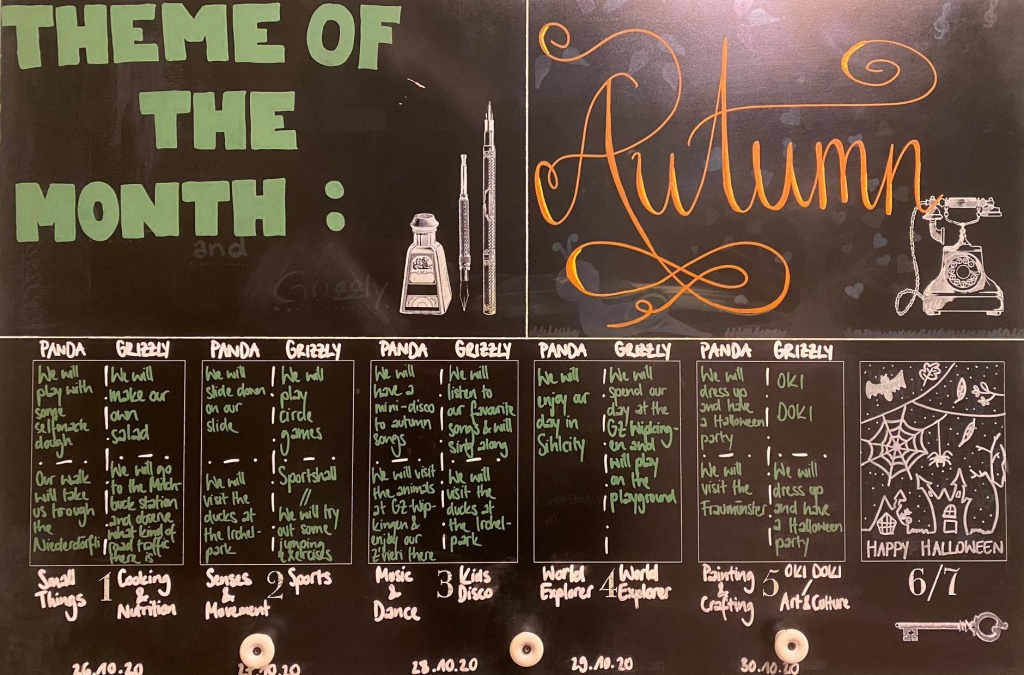 THEME OF
THE
MONTH :
Autumn
and
Grizzly
PANDA GRIZZLY
We will
play with
some
selfmade
dough
We will
make our
own
salad
Our walk
will take
us trough
the
Niederdörfli
We will go
to the Milch-
buck station
and observe
what kind of
road traffic
there is
Small
Things
1
Cooking
&
Nutrition
26.10.20
PANDA GRIZZLY
We will
slide down
on our
slide
We will
play
circle
games
We will
visit the
ducks at
the Irchel-
park
Sportshall
//
We will try
out some
jumping
exercises
Senses
&
Movement
2
Sports
27.10.20
PANDA GRIZZLY
We will
have a
mini-disco
to autumn
songs
We will
listen to
our favorite
songs & will
sing along
We will visit
the animals
at GZ Wip-
kingen &
enjoy our
Z'nieti there
We will
visit the
ducks at
the Irchel-
park
Music
&
Dance
3
Kids
Disco
28.10.20
PANDA GRIZZLY
We will
enjoy our
day in
Sihlcity
We will
spend our
day at the
GZ Wipking-
en and
will play
on the
playground
World
Explorer
4
World
Explorer
29.10.20
PANDA GRIZZLY
We will
dress up
and have
a Halloween
party
OKI
DOKI
We will
visit the
Fraumünster
We will
dress up
and have
a Halloween
party
Painting
&
Crafting
5
OKI DOKI
/
Art & Culture
30.10.20
HAPPY HALLOWEEN
6/7